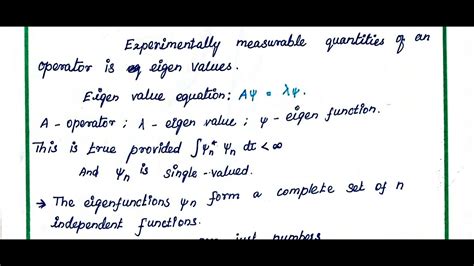 Experimentally measurable quantities of an
operator is eigen values.
Eigen value equation: Aψ = λψ.
A - operator ; λ - eigen value ; ψ - eigen function.
This is true provided ∫ψₙ* ψₙ dτ < ∞
And ψₙ is single-valued.
→ The eigenfunctions ψₙ form a complete set of n
independent functions.
just numbers